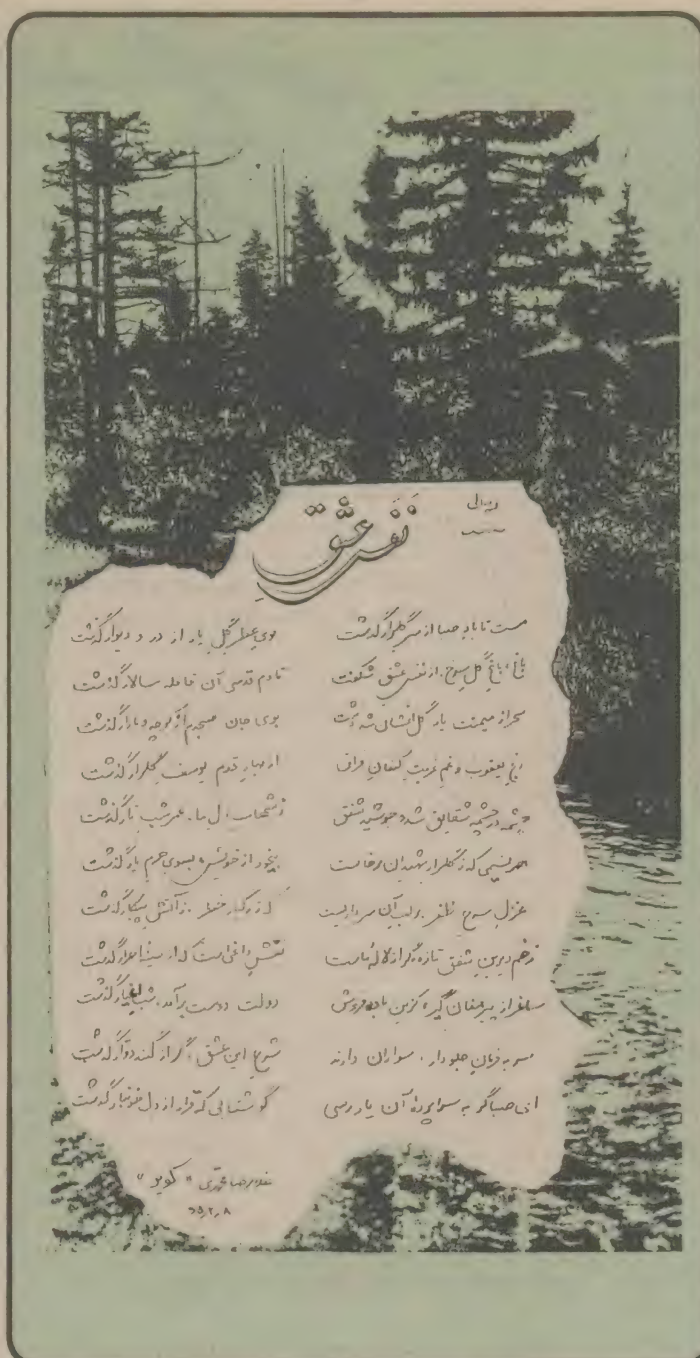 نفس عشق
مست تا باد صبا از سر گلزار گذشت
بوی عطر گل یار از در و دیوار گذشت
باغ، باغ گل سرخ، از نفس عشق شکفت
تا دم قدسی آن قافله سالار گذشت
سحر از میمنت یار گل افشان شد
بوی جان صبحدم از کوچه و بازار گذشت
رنج یعقوب و غم غربت کنعان فراق
از بهار قدم یوسف گلزار گذشت
چشمه در چشمه شقایق شد و جوشید شفق
ز شهاب دل ما، عمر شب تار گذشت
هر نسیمی که ز گلزار شهیدان برخاست
بیخود از خویش، بسوی حرم یار گذشت
غزل سرخ ظفر بر لب آن سرداریست
که ز رگبار خطر، ز آتش پیکار گذشت
زخم دیرین شفق تازه‌تر از لاله ماست
نقش داغی ست که از سینه گذشت
ساغر از پیر مغان گیر، کزین باده فروش
دولت دوست برآمد، شب اغیار گذشت
سر به فرمان جلودار، سواران دارند
شور این عشق، گر از گنبد دوار گذشت
ای صبا گر به سراپرده آن یار رسی
گو شتابی که قرار از دل خونبار گذشت
غلامرضا محمدی «کویر»
۶۵٫۲٫۸